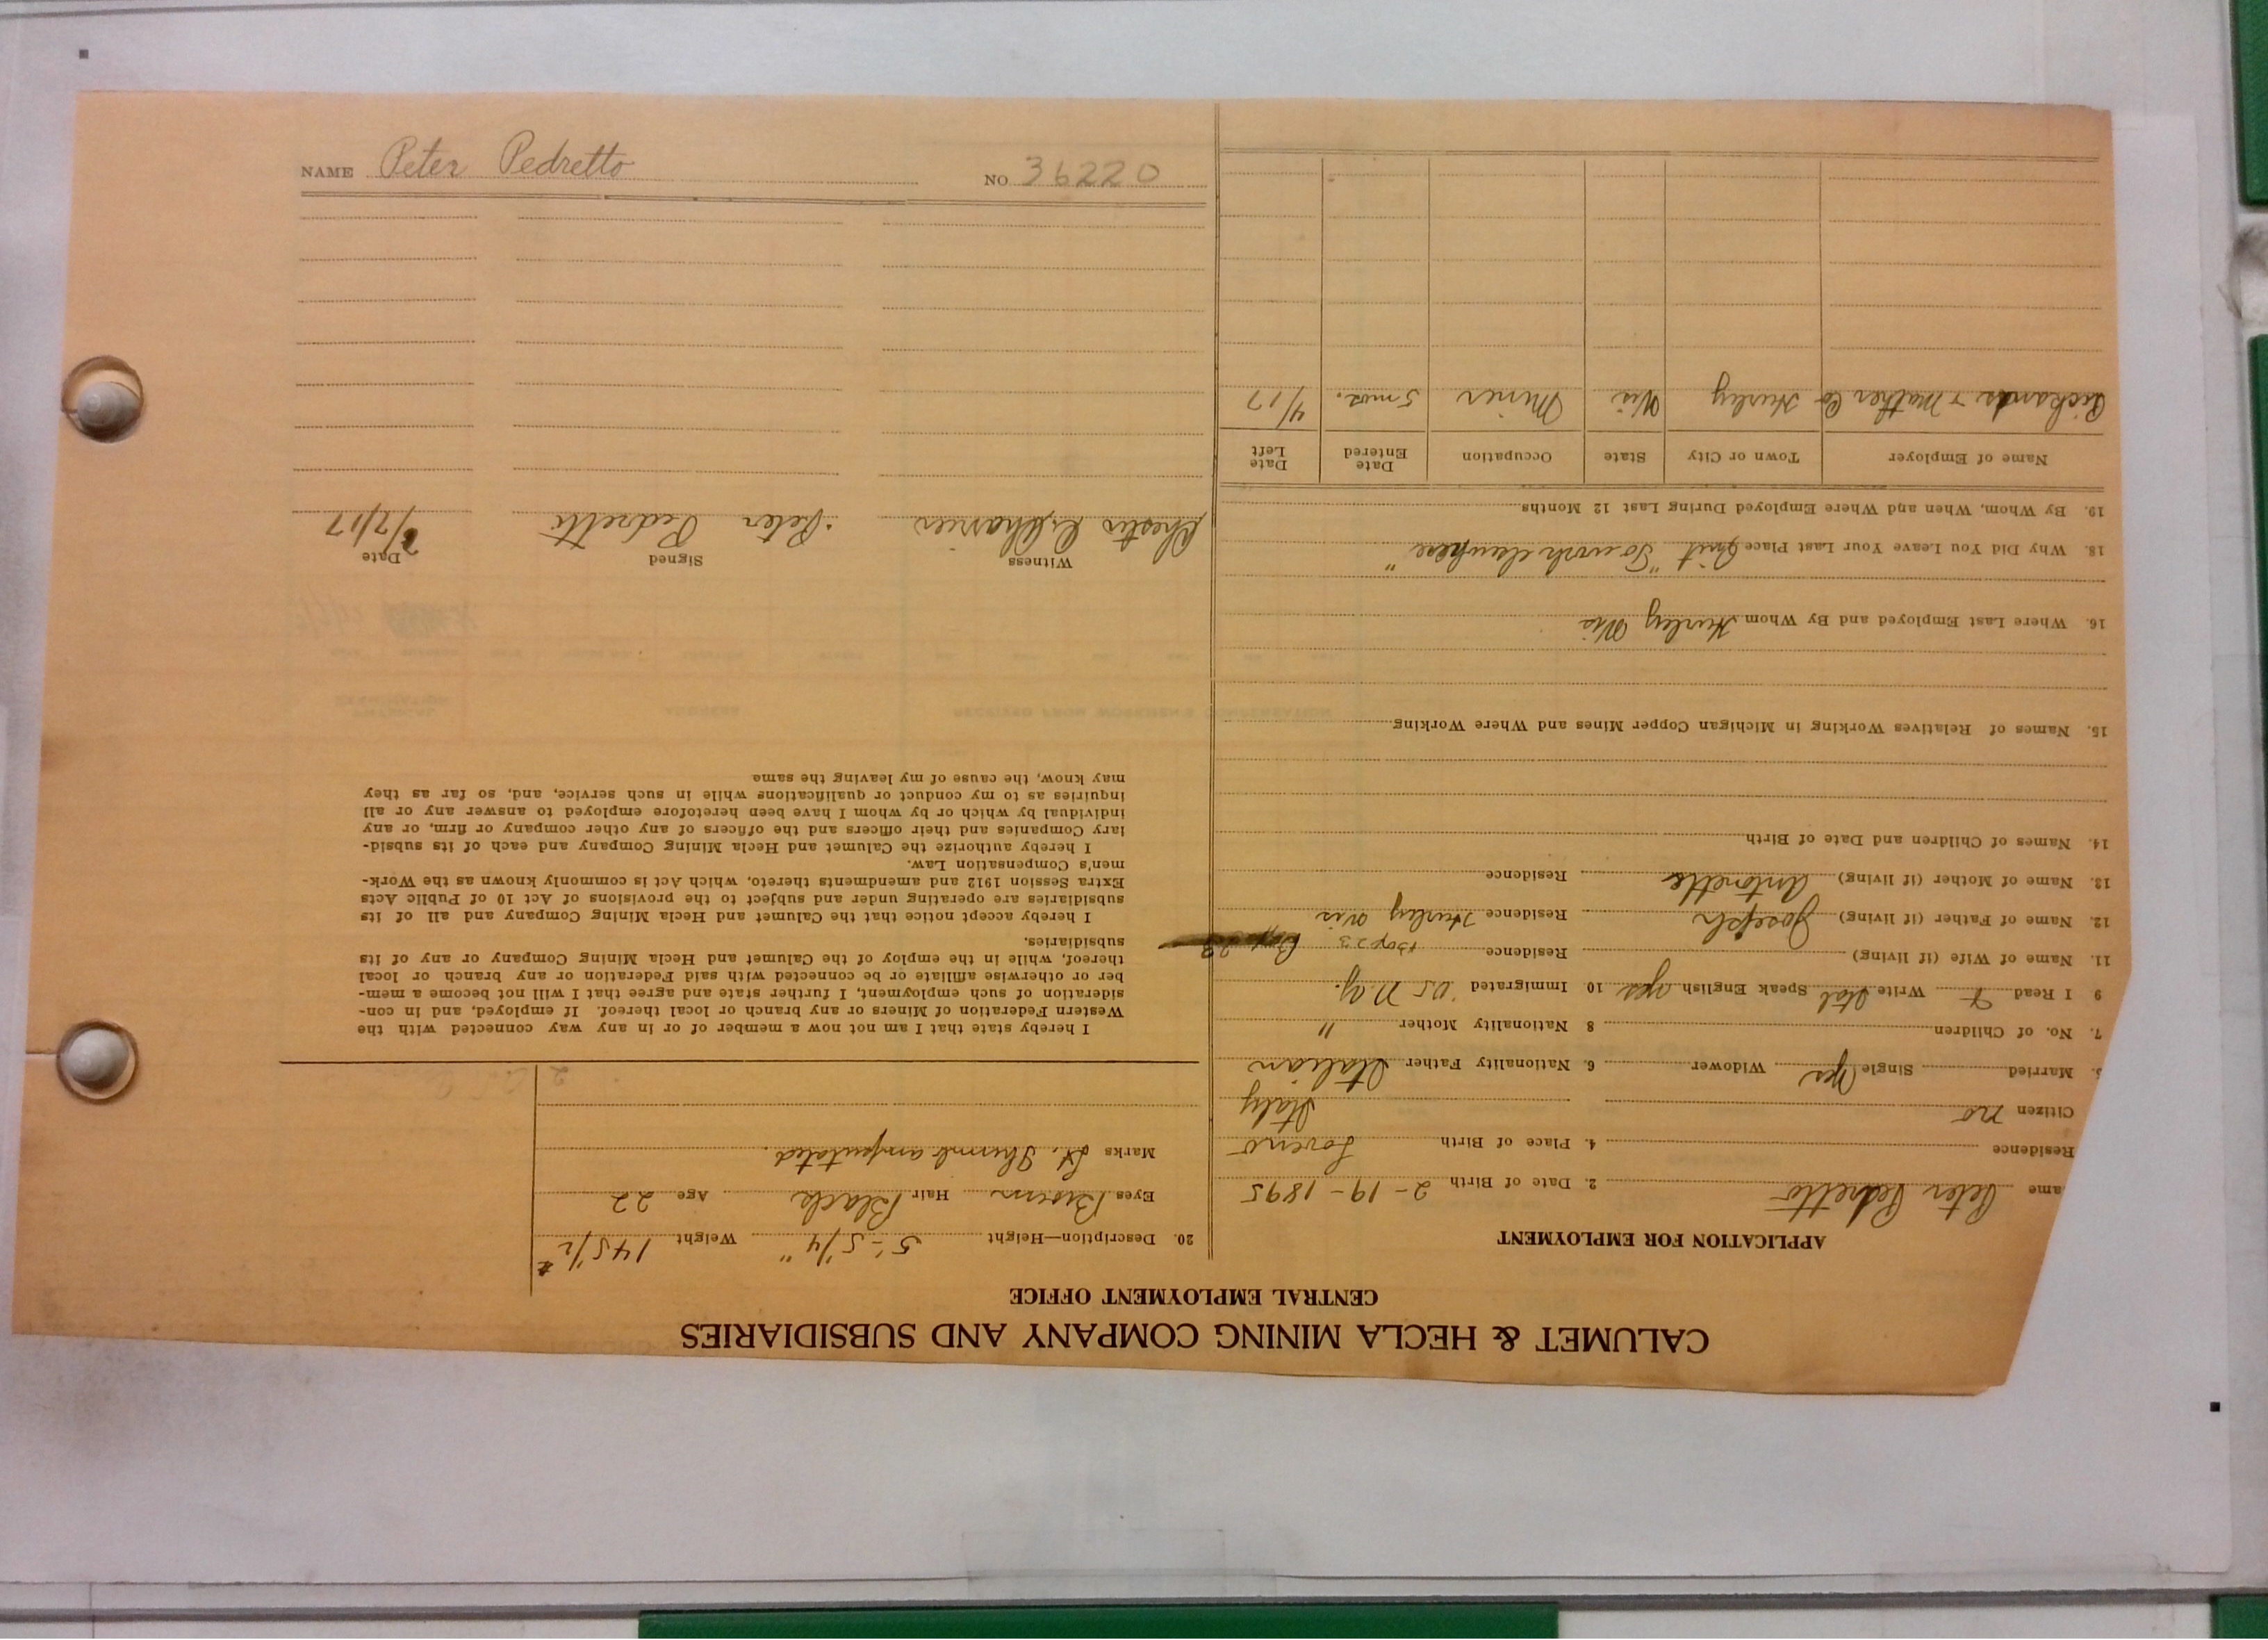 NAME Peter Pedretto NO 36220
CALUMET & HECLA MINING COMPANY AND SUBSIDIARIES
CENTRAL EMPLOYMENT OFFICE
APPLICATION FOR EMPLOYMENT
ame Peter Pedretto 2. Date of Birth 2-19-1895
Residence 4. Place of Birth Loveno
Citizen no Italy
Married Single yes Widower 6. Nationality Father Italian
7. No. of Children 8 Nationality Mother "
9 I Read & Write Ital Speak English yes 10 Immigrated '05 N.Y.
11. Name of Wife (if living) Residence Box 23
12. Name of Father (if living) Joseph Residence Hurley Wis
13. Name of Mother (if living) Antonette Residence
14. Names of Children and Date of Birth
15. Names of Relatives Working in Michigan Copper Mines and Where Working
16. Where Last Employed and By Whom Hurley Wis
18. Why Did You Leave Your Last Place Quit "To work elsewhere"
19. By Whom, When and Where Employed During Last 12 Months
Name of Employer Town or City State Occupation Date Entered Date Left
Pickands & Mather Co Hurley Wis Miner 5 mos. 4/17
20. Description—Height 5'-5 1/4" Weight 145 1/2 #
Eyes Brown Hair Black Age 22
Marks Lt. Thumb amputated.
I hereby state that I am not now a member of or in any way connected with the
Western Federation of Miners or any branch or local thereof. If employed, and in con-
sideration of such employment, I further state and agree that I will not become a mem-
ber or otherwise affiliate or be connected with said Federation or any branch or local
thereof, while in the employ of the Calumet and Hecla Mining Company or any of its
subsidiaries.
I hereby accept notice that the Calumet and Hecla Mining Company and all of its
subsidiaries are operating under and subject to the provisions of Act 10 of Public Acts
Extra Session 1912 and amendments thereto, which Act is commonly known as the Work-
men's Compensation Law.
I hereby authorize the Calumet and Hecla Mining Company and each of its subsid-
iary Companies and their officers and the officers of any other company or firm, or any
individual by which or by whom I have been heretofore employed to answer any or all
inquiries as to my conduct or qualifications while in such service, and, so far as they
may know, the cause of my leaving the same
Witness Signed Date
Chester Peter Pedretti /7/17